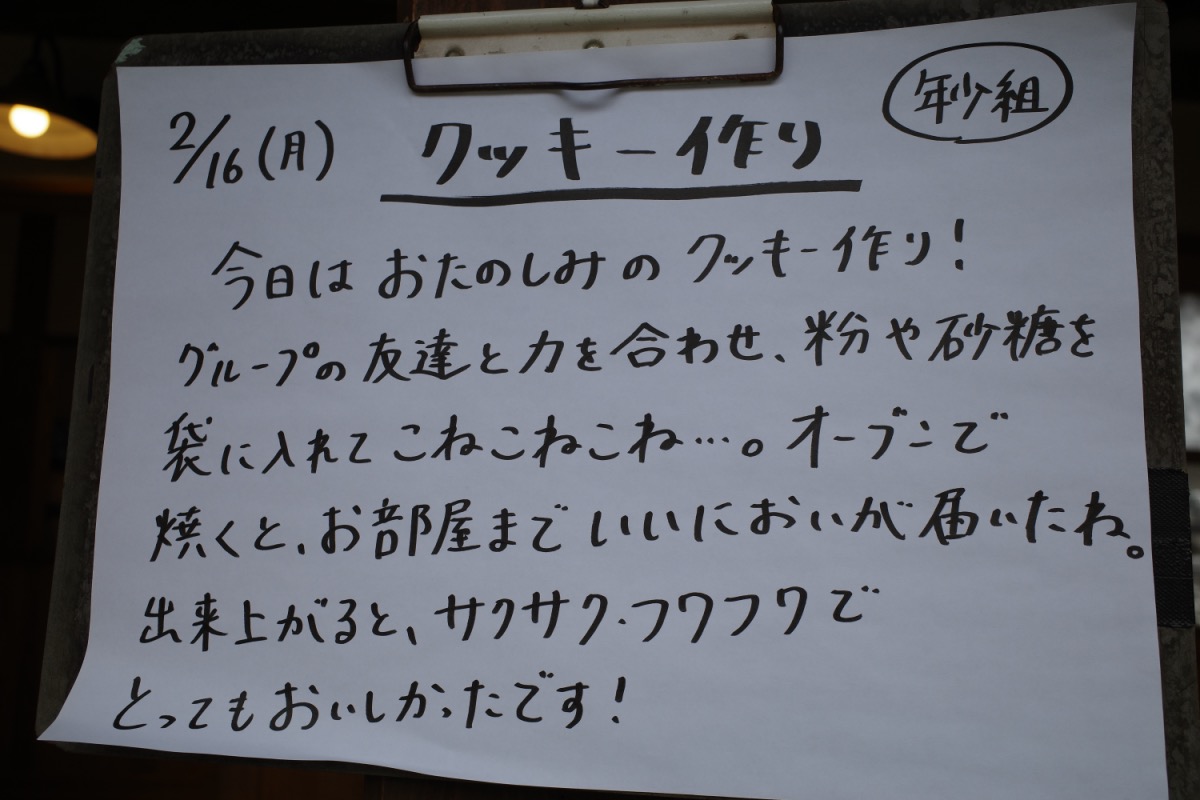 年少組
2/16(月) クッキー作り
今日はおたのしみのクッキー作り!
グループの友達と力を合わせ、粉や砂糖を
袋に入れてこねこねこね…。オーブンで
焼くと、お部屋までいいにおいが届いたね。
出来上がると、サクサク・フワフワで
とってもおいしかったです!